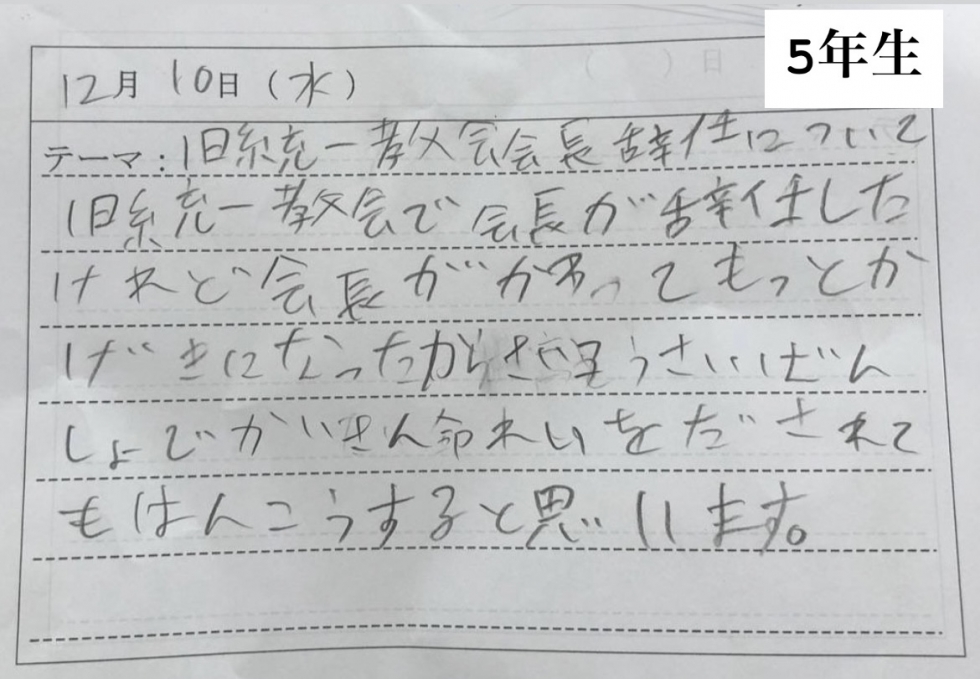 5年生
12月 10日 (水)
テーマ:旧統一教会会長辞任について
旧統一教会で会長が辞任した
けれど会長がかわってもっとか
げきになったから さいばん
しょでかいさん命れいをだされて
もはんこうすると思います。
( ) 日